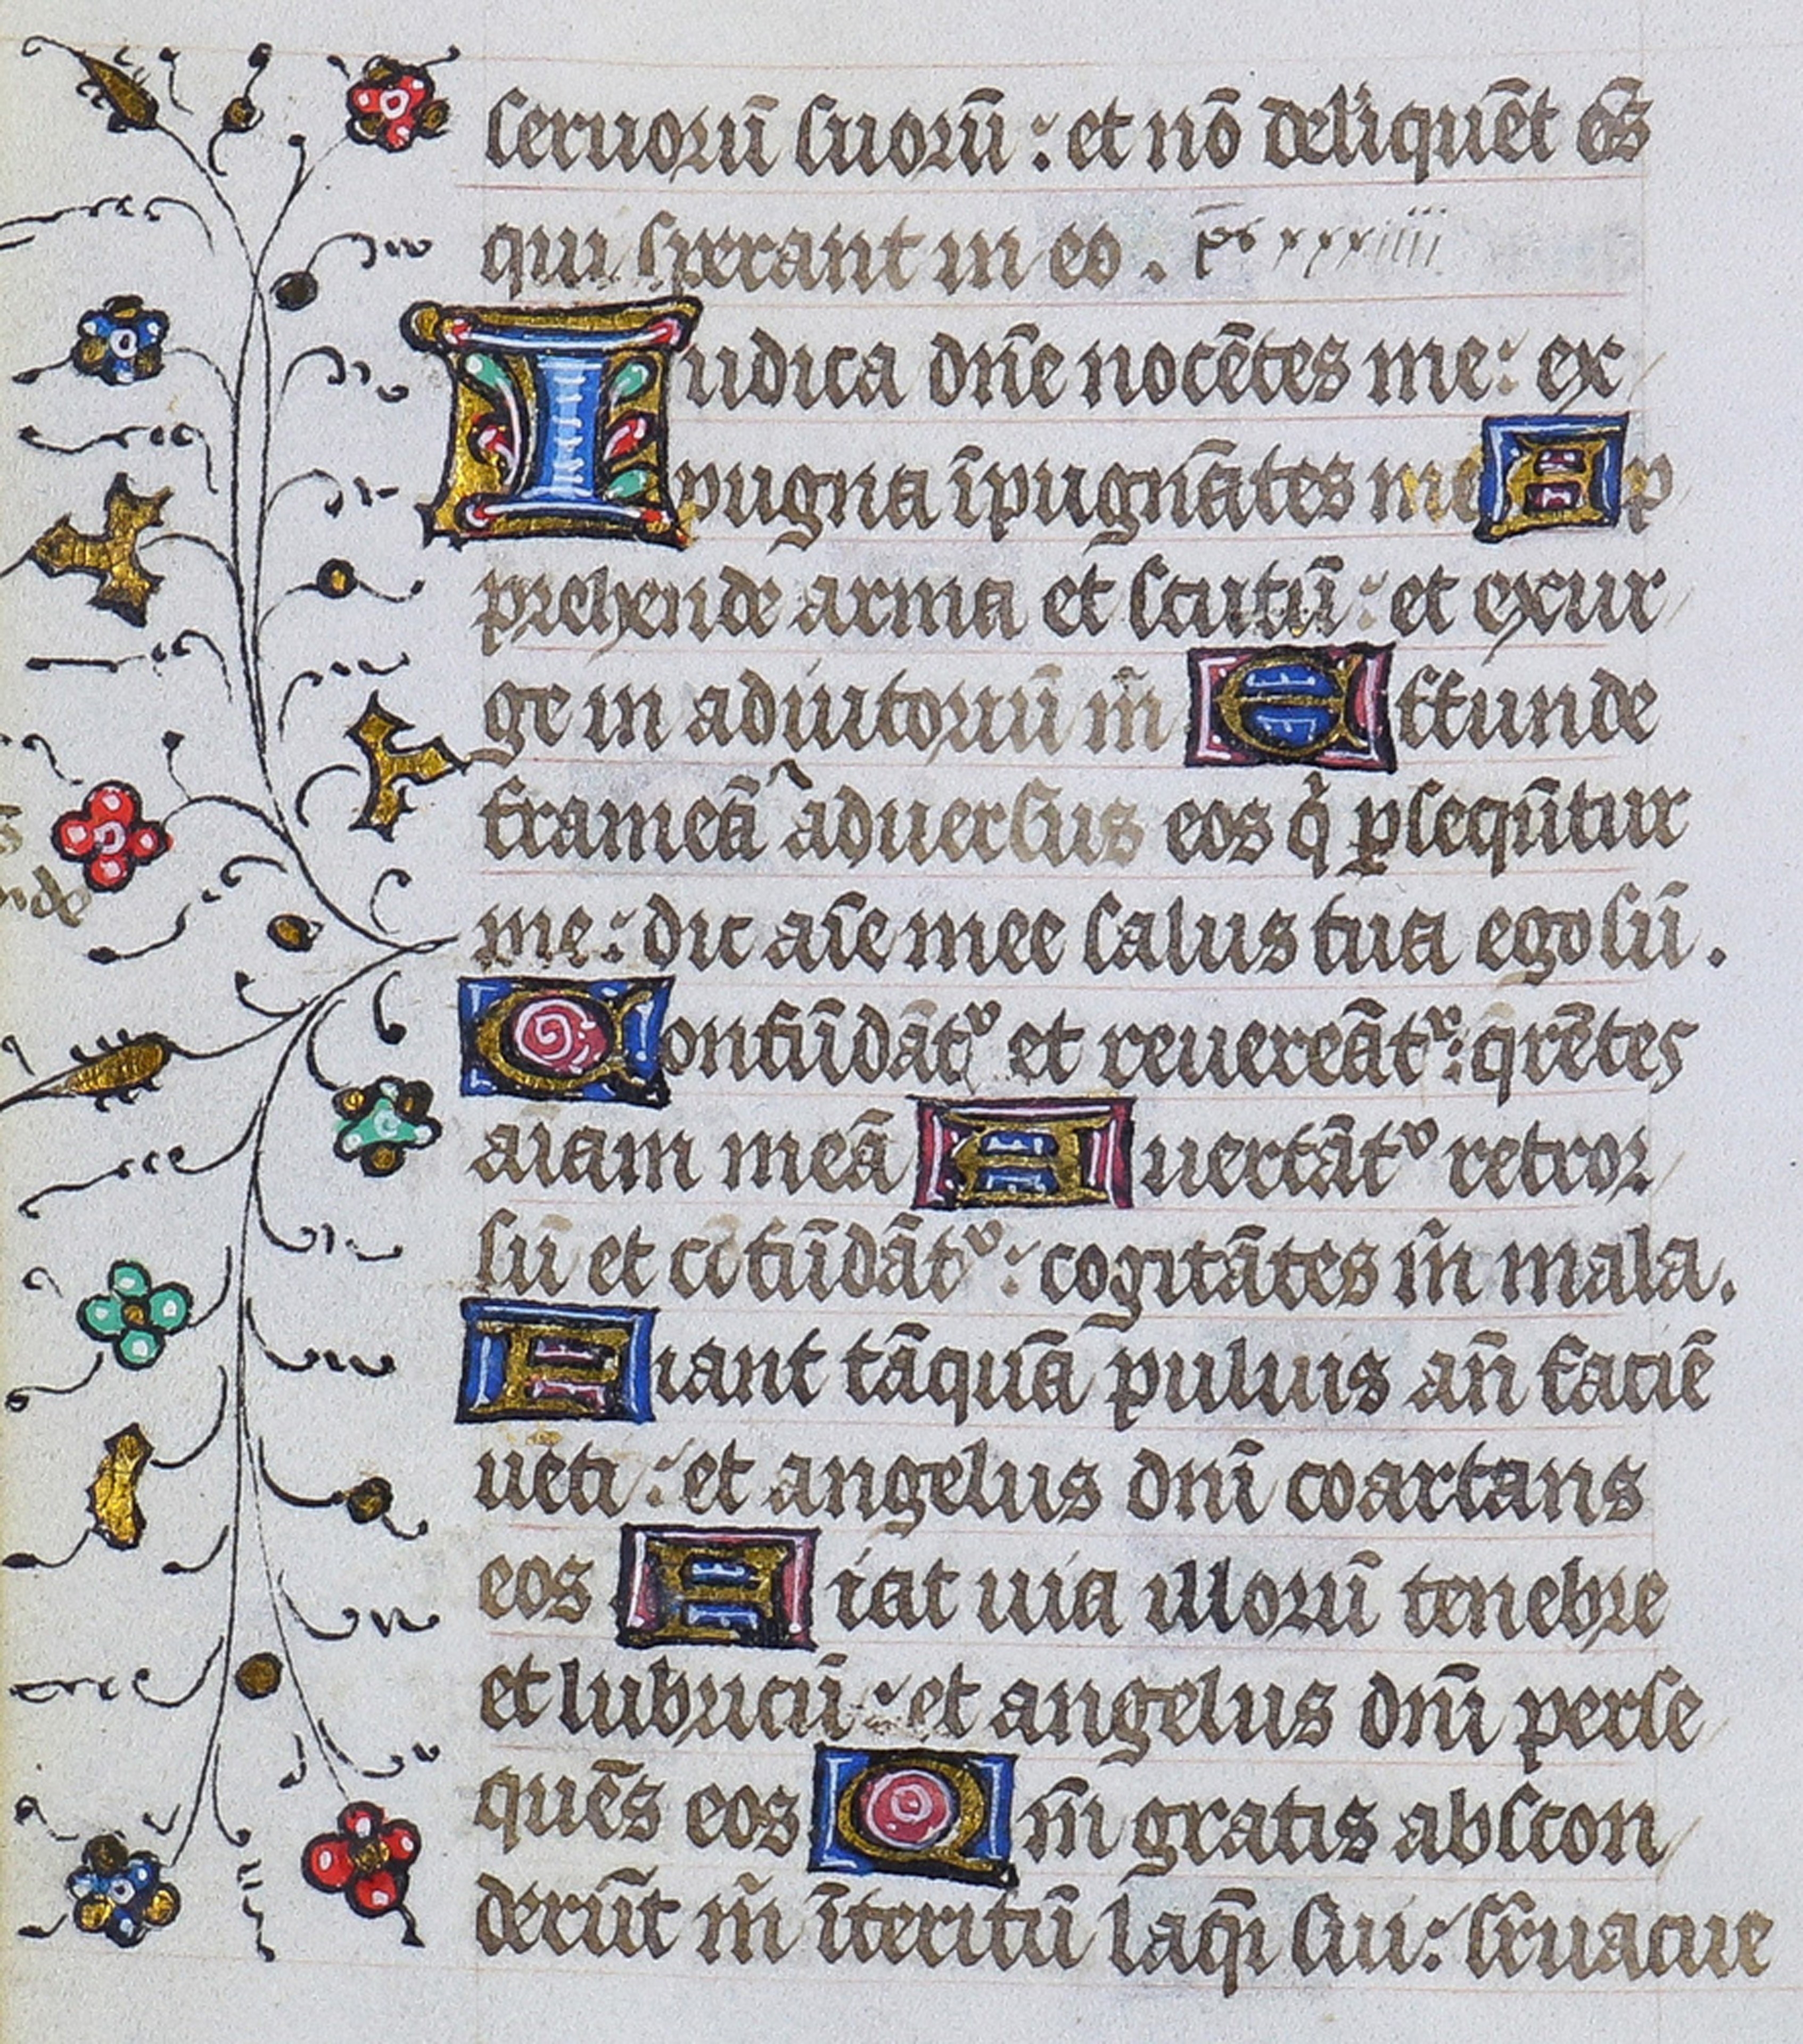 seruorū suorū : et nō deliq̄uēt om̄s
qui sperant in eo . p̄s xxxiiii
Iudica dn̄e nocētes me : ex
pugna īpugnātes me Ap
prehende arma et scutū : et exur
ge in adiutoriū m̄ Effunde
frameā aduersus eos q̇ ꝑsequūtur
me : dic aīe mee salus tua ego sū .
Confūdātᵛ et reuereātʳ : qr̄ētes
aīam meā Auertātᵛ retror
sū et cōfūdātᵛ : cogitātes m̄ mala .
Fiant tāquā puluis an̄ faciē
uēti : et angelus dn̄i coartans
eos Fiat uia illorū tenebre
et lubricū : et angelus dn̄i perse
quēs eos Qm̄ gratis abscon
derūt m̄ īteritū laq̄i sui : suꝑuacue
nde